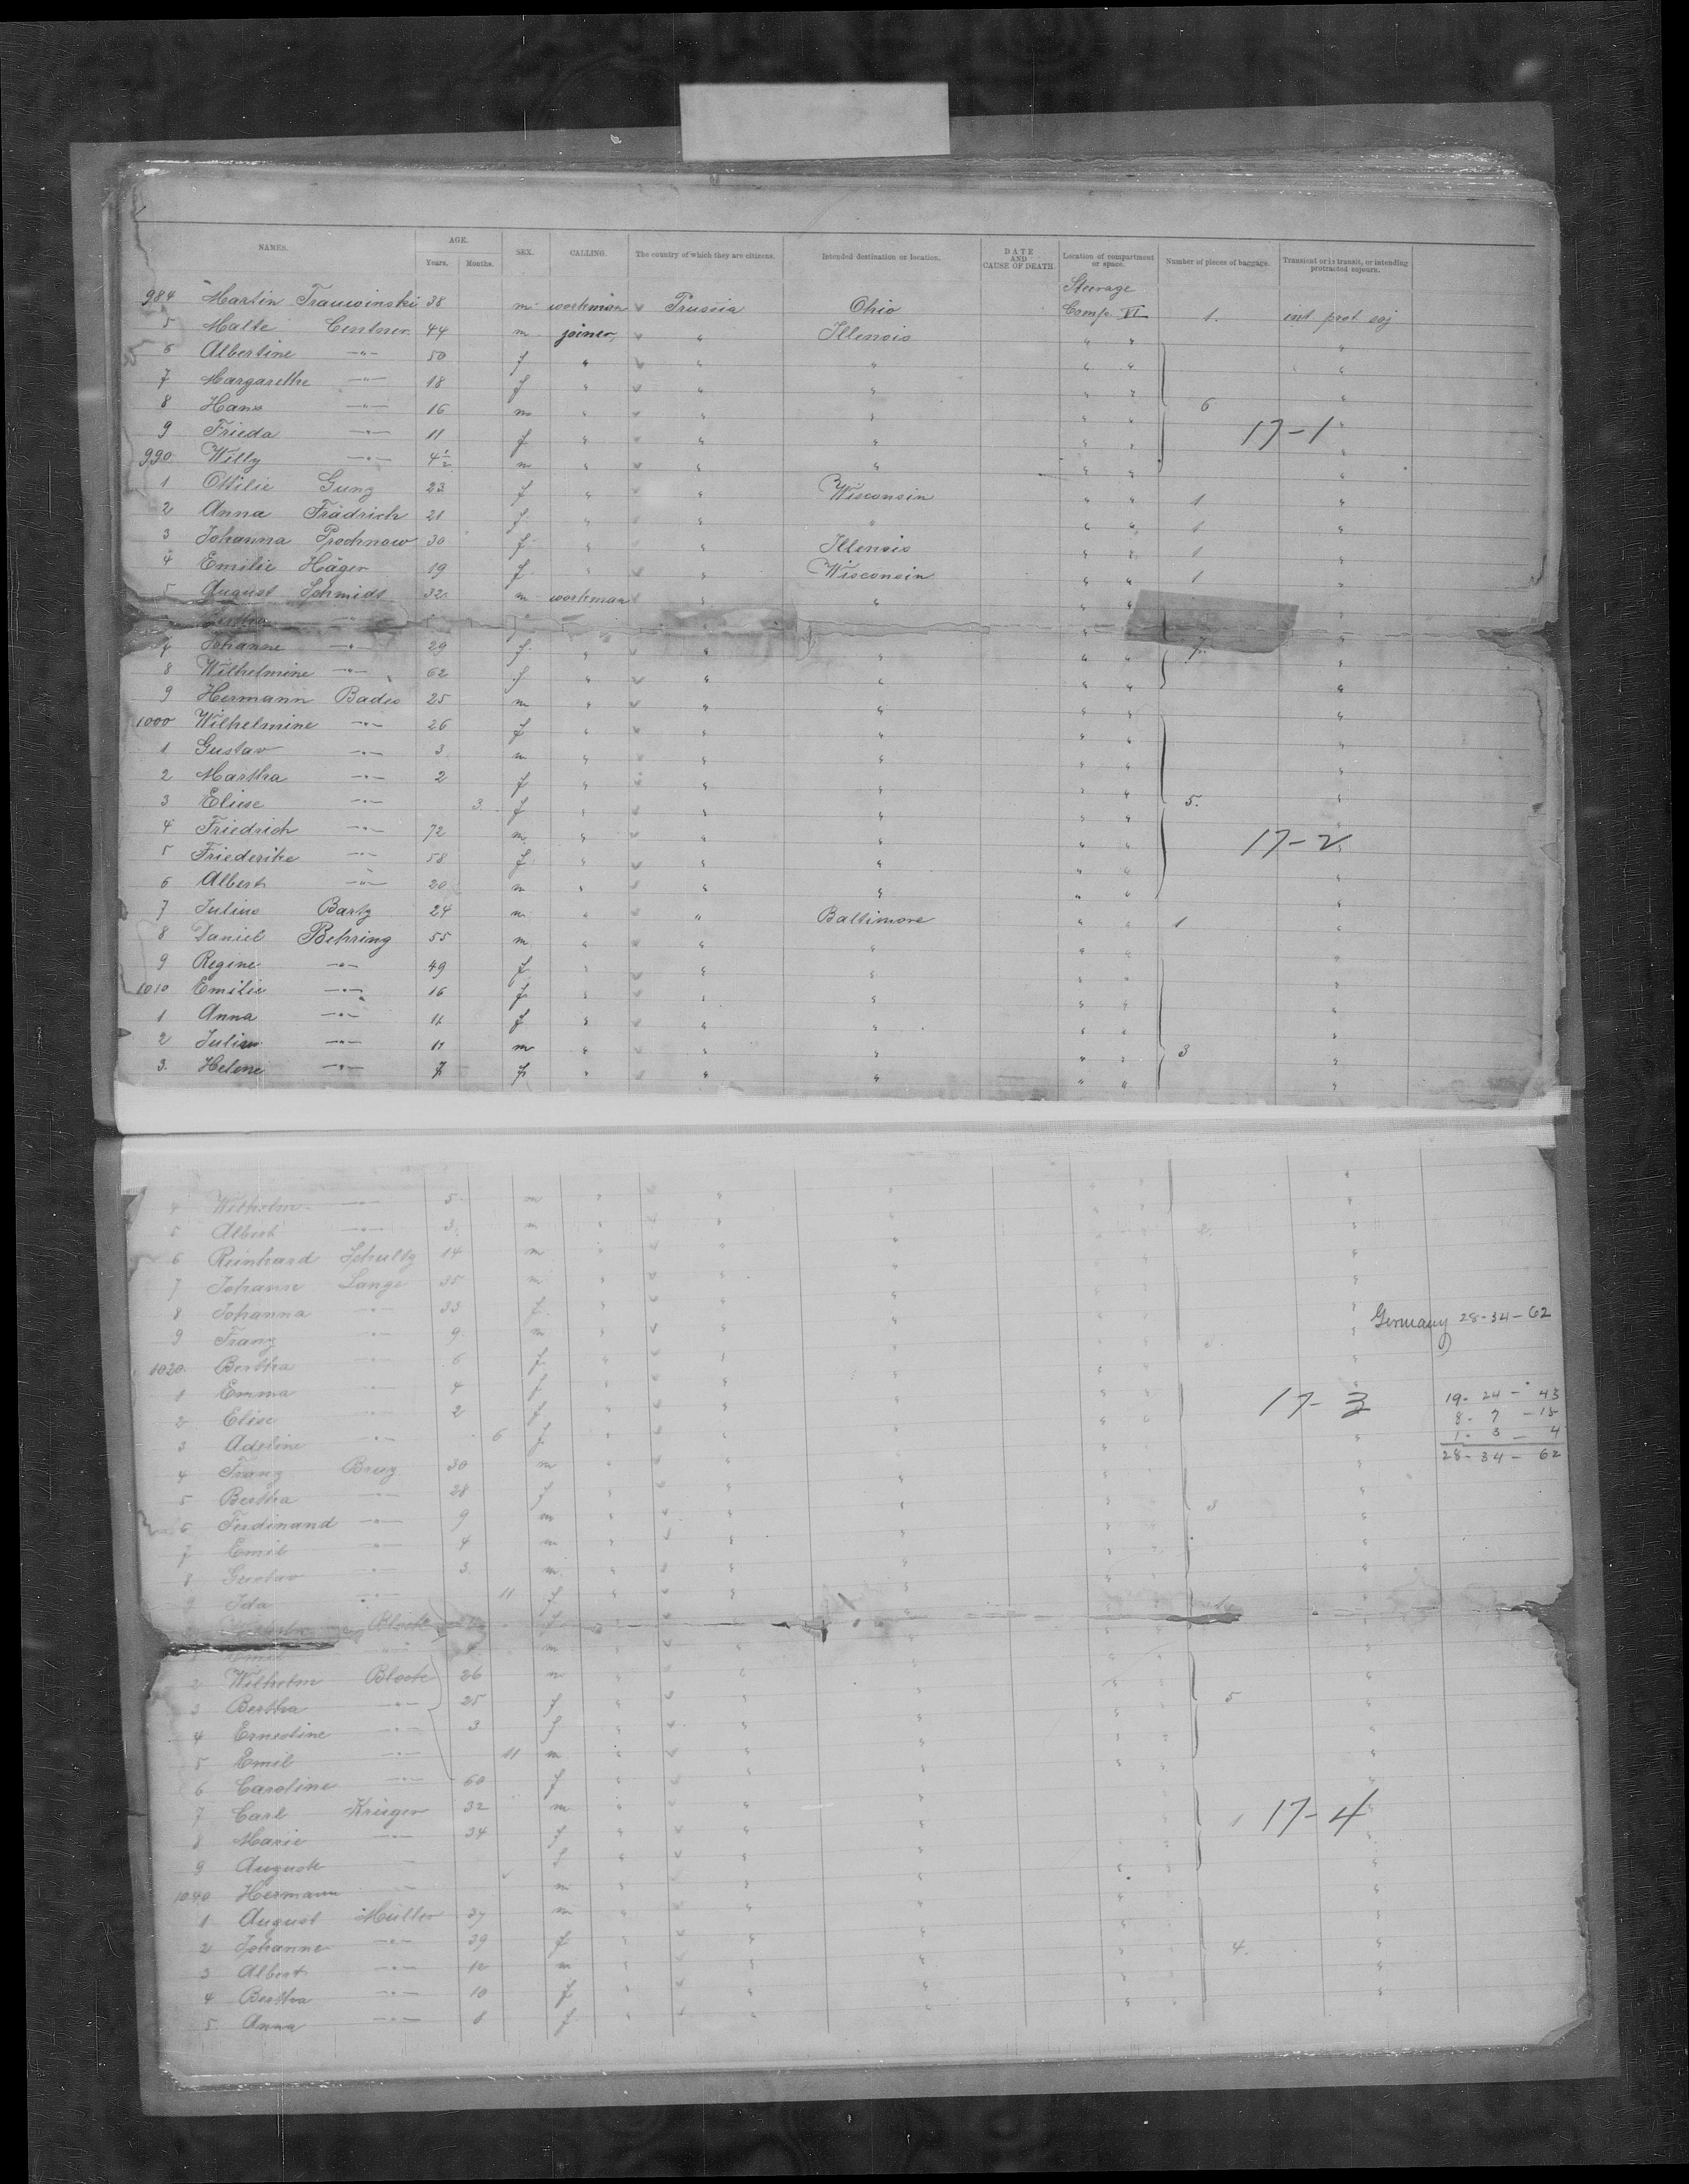 NAMES. AGE. Years. Months. SEX. CALLING. The country of which they are citizens. Intended destination or location. DATE AND CAUSE OF DEATH. Location of compartment or space. Number of pieces of baggage. Transient or in transit, or intending protracted sojourn.
Steerage
984 Martin Trauwinski 38 m workman Prussia Ohio Comp. VI 1. int prot soj
5 Malte Centner 44 m joiner " Illenois " " "
6 Albertine —"— 50 f " " " " " "
7 Margarethe —"— 18 f " " " " " "
8 Hans —"— 16 m " " " " " 6 "
9 Frieda —"— 11 f " " " " " 17-1 "
990 Willy —"— 4½ m " " " " " "
1 Ottilie Gunz 23 f " " Wisconsin " " 1 "
2 Anna Frädrich 21 f " " " " " 1 "
3 Johanna Prochnow 30 f " " Illenois " " 1 "
4 Emilie Häger 19 f " " Wisconsin " " 1 "
5 August Schmidt 32 m workman " " " " "
7 Johanne —"— 29 f " " " " " 7. "
8 Wilhelmine —"— 62 f " " " " " "
9 Hermann Bades 25 m " " " " " "
1000 Wilhelmine —"— 26 f " " " " " "
1 Gustav —"— 3 m " " " " " "
2 Martha —"— 2 f " " " " " "
3 Eliese —"— 3 f " " " " " 5. "
4 Friedrich —"— 72 m " " " " " "
5 Friederike —"— 58 f " " " " " 17-2 "
6 Albert —"— 20 m " " " " " "
7 Julius Bartz 24 m " " Baltimore " " 1 "
8 Daniel Behring 55 m " " " " " "
9 Regine —"— 49 f " " " " " "
1010 Emilie —"— 16 f " " " " " "
1 Anna —"— f " " " " " "
2 —"— 11 m " " " " " 3 "
3. Helene —"— 7 f " " " " " "
4 Wilhelm —"— 5 m " " " " " "
5 Albert —"— 3 m " " " " " "
6 Reinhard Schultz 14 m " " " " " 2. "
7 Johann Lange 35 m " " " " " "
8 Johanna —"— 33 f " " " " " "
Germany 28-34-62
9 Franz —"— 9 m " " " " " "
1020. Bertha —"— 6 f " " " " " "
1 Emma —"— 4 f " " " " " 17-3 " 19-24-43
2 Elise —"— 2 f " " " " " " 8-7-15
3 Adeline —"— 6 f " " " " " " 1-3-4
4 Franz 30 m " " " " " " 28-34-62
5 Bertha —"— 28 f " " " " " "
6 Ferdinand —"— 9 m " " " " " 3 "
7 Emil —"— 4 m " " " " " "
8 Gustav —"— 3 m " " " " " "
9 Ida —"— 11 f " " " " " "
Block f " " " " " "
1 Emil —"— 4 m " " " " " "
2 Wilhelm Block 26 m " " " " " "
3 Bertha —"— 25 f " " " " " 5 "
4 Ernestine —"— 3 f " " " " " "
5 Emil —"— 11 m " " " " " "
6 Caroline —"— 60 f " " " " " "
7 Carl Krüger 32 m " " " " " 1 17-4 "
8 Marie —"— 34 f " " " " " "
9 Auguste — f " " " " " "
1040 Hermann — m " " " " " "
1 August Müller 37 m " " " " " "
2 Johanne —"— 39 f " " " " " 4. "
3 Albert —"— 12 m " " " " " "
4 Bertha —"— 10 f " " " " " "
5 Anna —"— f " " "